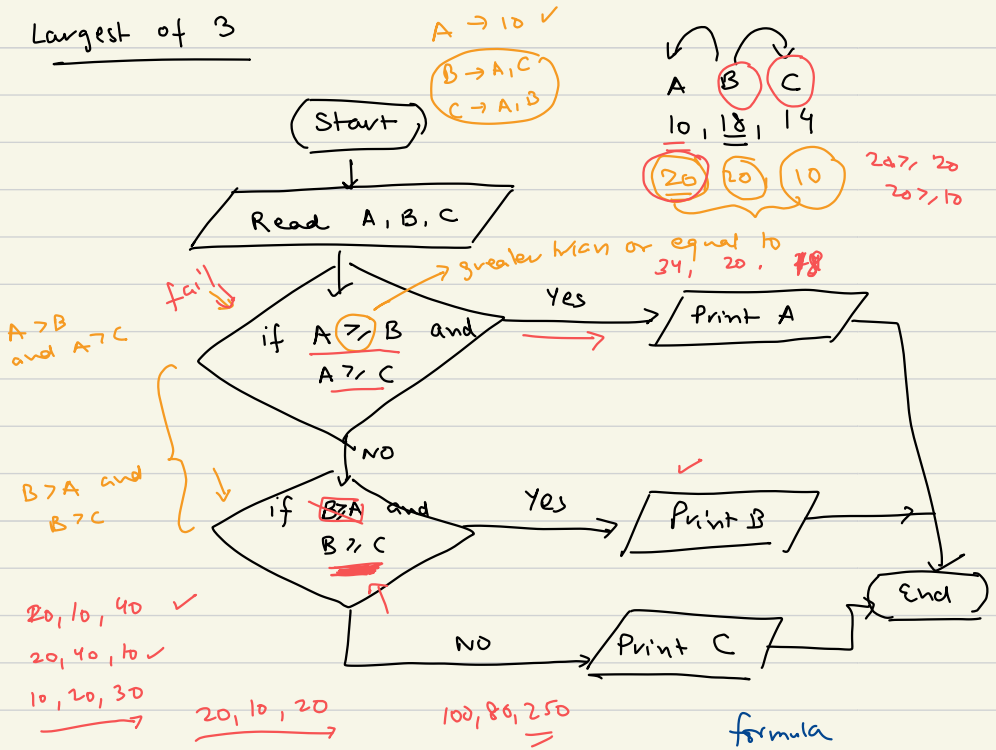 Largest of 3
A → 10 ✓
B → A, C
C → A, B
A B C
10, 18, 14
20 20 10
20 ≥ 20
20 ≥ 10
Start
Read A, B, C
greater than or equal to
34, 20.
fail
A > B
and A > C
if A ≥ B and
A ≥ C
Yes
Print A
NO
B > A and
B > C
if B≥A and
B ≥ C
Yes
Print B
End
NO
Print C
20, 10, 40 ✓
20, 40, 10 ✓
10, 20, 30
20, 10, 20
100, 80, 250
formula